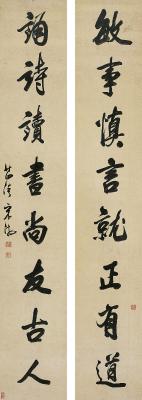 敏事慎言就正有道
誦詩讀書尚友古人